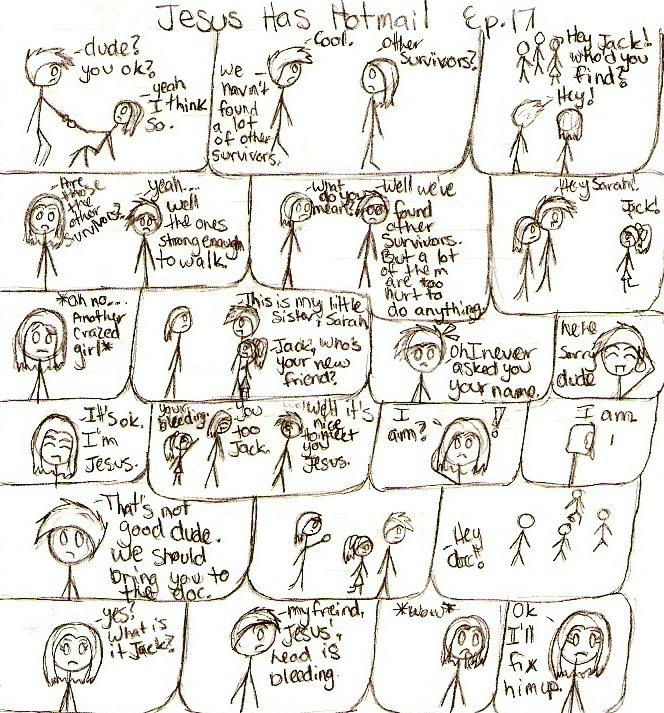 Jesus Has Hotmail Ep. 17
-dude?
you ok?
-yeah
I think
so.
Cool.
we
havn't
found
a lot
of other
survivors.
other
survivors?
Hey Jack!
who'd you
find?
Hey!
-Are
those
the
other
survivors?
-Yeah....
well
the ones
strong enough
to walk.
-What
do you
mean?
-Well we've
found
other
survivors.
But a lot
of them
are too
hurt to
do anything.
-Hey Sarah!
Jack!
*oh no....
Another
crazed
girl*
-This is my little
sister, Sarah
-Jack, who's
your new
friend?
Oh I never
asked you
your name.
hehe
sorry
dude
It's ok.
I'm
Jesus.
your
bleeding.
-You
too
Jack.
well it's
nice
to meet
you
Jesus.
I
am?
!!
I am
!
-That's not
good dude.
we should
bring you to
the doc.
Hey
doc!
yes?
What is
it Jack?
-my freind,
Jesus',
head is
bleeding.
*wow*
Ok
I'll
fix
him up.